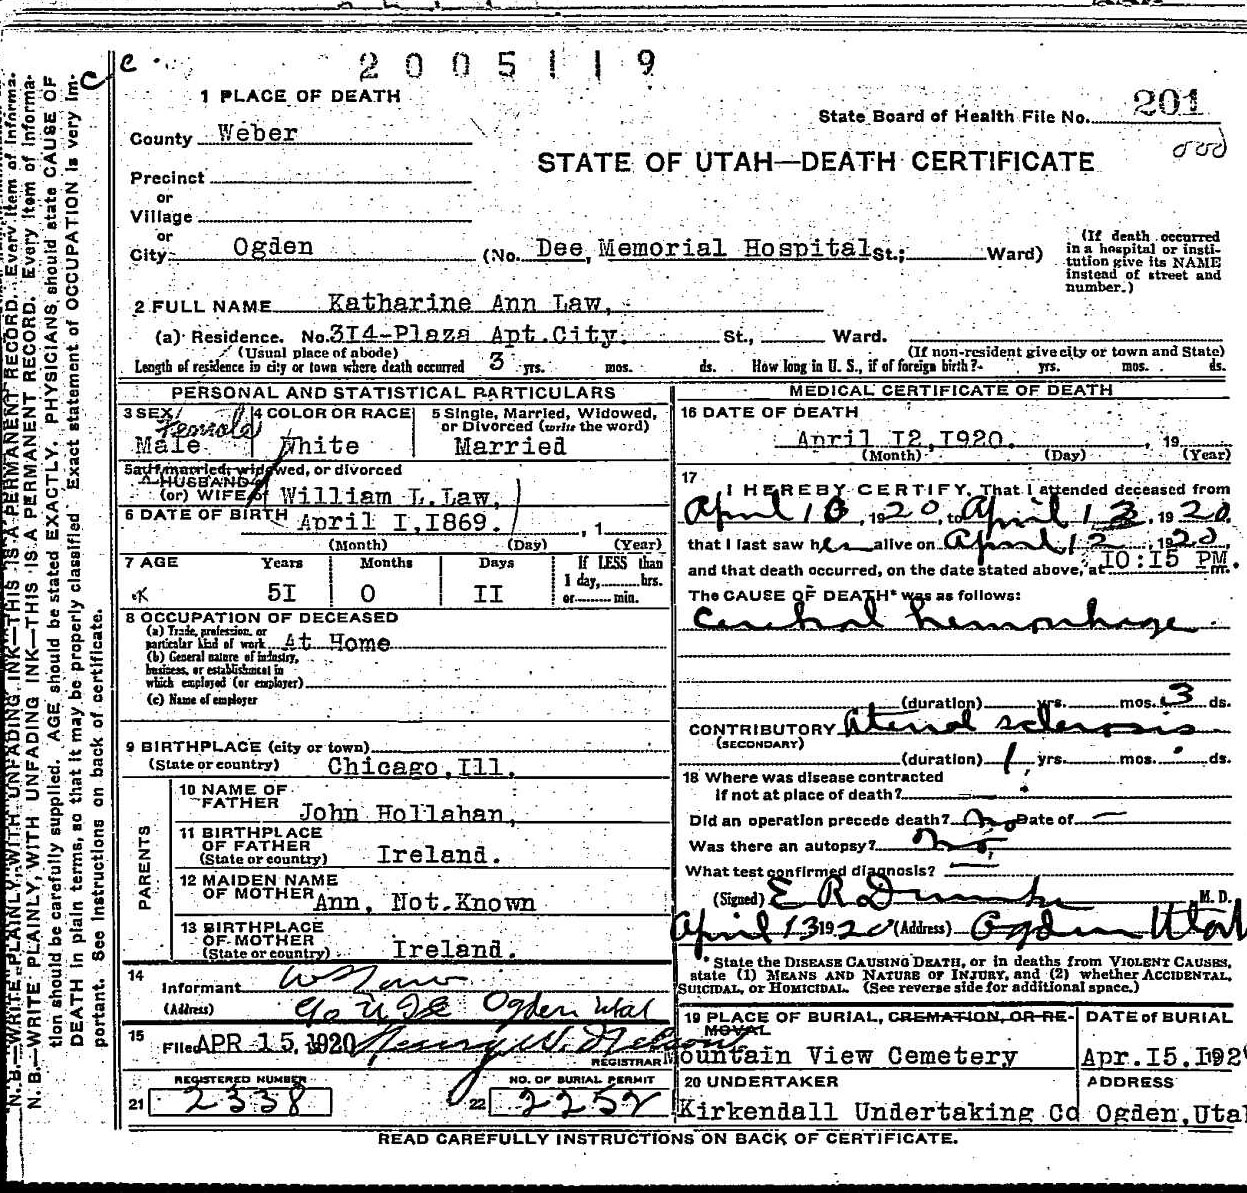 2005119
1 PLACE OF DEATH
State Board of Health File No. 201
County Weber
STATE OF UTAH—DEATH CERTIFICATE
Precinct
or
Village
or
City Ogden (No. Dee, Memorial Hospital St.; Ward)
(If death occurred in a hospital or institution give its NAME instead of street and number.)
2 FULL NAME Katharine Ann Law,
(a) Residence. No. 3I4-Plaza Apt.City. St., Ward.
(Usual place of abode) (If non-resident give city or town and State)
Length of residence in city or town where death occurred 3 yrs. mos. ds. How long in U. S., if of foreign birth? yrs. mos. ds.
PERSONAL AND STATISTICAL PARTICULARS
3 SEX Female
Male
4 COLOR OR RACE
White
5 Single, Married, Widowed, or Divorced (write the word)
Married
5a If married, widowed, or divorced
HUSBAND of
(or) WIFE of William L.Law,
6 DATE OF BIRTH April I,I869. , 1
(Month) (Day) (Year)
7 AGE Years Months Days If LESS than
1 day, hrs.
5I 0 II or min.
8 OCCUPATION OF DECEASED
(a) Trade, profession, or
particular kind of work At Home
(b) General nature of industry,
business, or establishment in
which employed (or employer)
(c) Name of employer
9 BIRTHPLACE (city or town)
(State or country) Chicago,Ill.
PARENTS
10 NAME OF
FATHER John Hollahan,
11 BIRTHPLACE
OF FATHER
(State or country) Ireland.
12 MAIDEN NAME
OF MOTHER Ann, Not.Known
13 BIRTHPLACE
OF MOTHER
(State or country) Ireland.
14
Informant W L Law
(Address) Ogden Utah
15
Filed APR 15, 1920 Henry W. Nelson
REGISTRAR
REGISTERED NUMBER NO. OF BURIAL PERMIT
21 2338 22 2252
MEDICAL CERTIFICATE OF DEATH
16 DATE OF DEATH
April I2,I920. , 19
(Month) (Day) (Year)
17 I HEREBY CERTIFY, That I attended deceased from
April 10, 1920, to April 12, 1920,
that I last saw her alive on April 12, 1920,
and that death occurred, on the date stated above, at IO:I5 PM m.
The CAUSE OF DEATH* was as follows:
Cerebral hemorrhage
(duration) yrs. mos. 3 ds.
CONTRIBUTORY Arterial sclerosis
(SECONDARY)
(duration) 1 yrs. mos. ds.
18 Where was disease contracted
if not at place of death?
Did an operation precede death? No Date of —
Was there an autopsy? No
What test confirmed diagnosis? —
(Signed) E R Dumke M. D.
April 13 1920 (Address) Ogden Utah
* State the DISEASE CAUSING DEATH, or in deaths from VIOLENT CAUSES,
state (1) MEANS AND NATURE OF INJURY, and (2) whether ACCIDENTAL,
SUICIDAL, or HOMICIDAL. (See reverse side for additional space.)
19 PLACE OF BURIAL, CREMATION, OR RE-
MOVAL
Mountain View Cemetery
DATE of BURIAL
Apr.I5.I92
20 UNDERTAKER
Kirkendall Undertaking Co
ADDRESS
Ogden,Utah
READ CAREFULLY INSTRUCTIONS ON BACK OF CERTIFICATE.
N. B.—WRITE PLAINLY, WITH UNFADING INK—THIS IS A PERMANENT RECORD. Every item of informa-
tion should be carefully supplied. AGE should be stated EXACTLY. PHYSICIANS should state CAUSE OF
DEATH in plain terms, so that it may be properly classified. Exact statement of OCCUPATION is very im-
portant. See instructions on back of certificate.